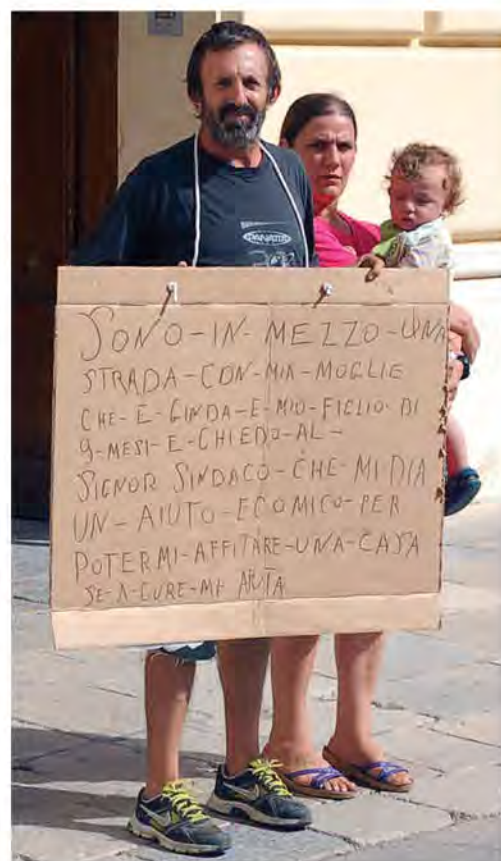 SONO-IN-MEZZO-UNA
STRADA-CON-MIA-MOGLIE
CHE-È-GINDA-E-MIO-FIGLIO-DI
9-MESI-E-CHIEDO-AL-
SIGNOR SINDACO-CHE-MI DIA
UN-AIUTO-ECOMICO-PER
POTERMI-AFFITARE-UNA-CASA
SE-A-CURE-MI AIUTA